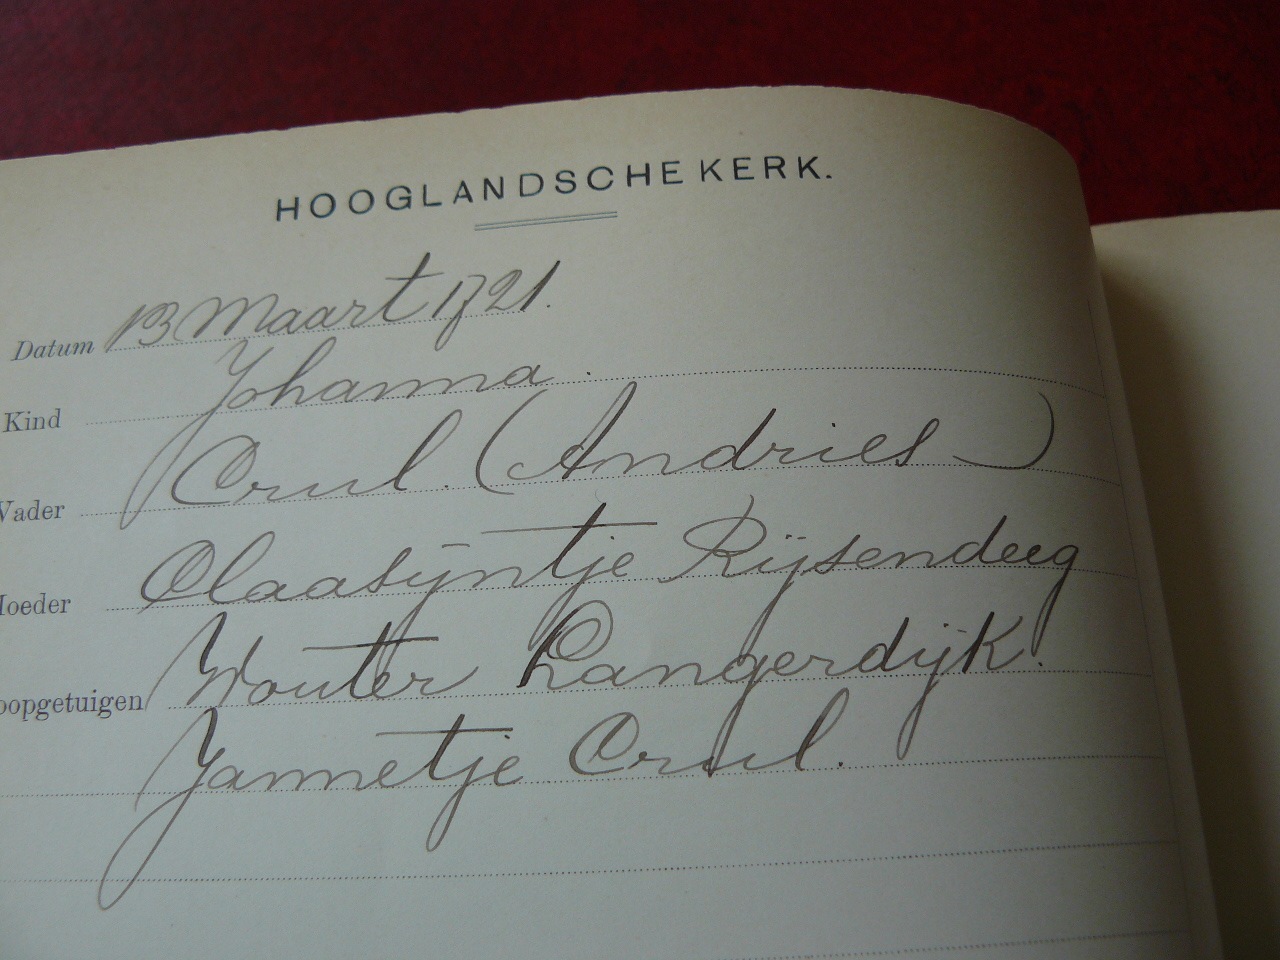 HOOGLANDSCHE KERK.
Datum 13 Maart 1721.
Kind Johanna.
Vader Crul. (Andries)
Moeder Claasijntje Rijsendeeg
oopgetuigen Wouter Langerdijk.
Jannetje Crul.